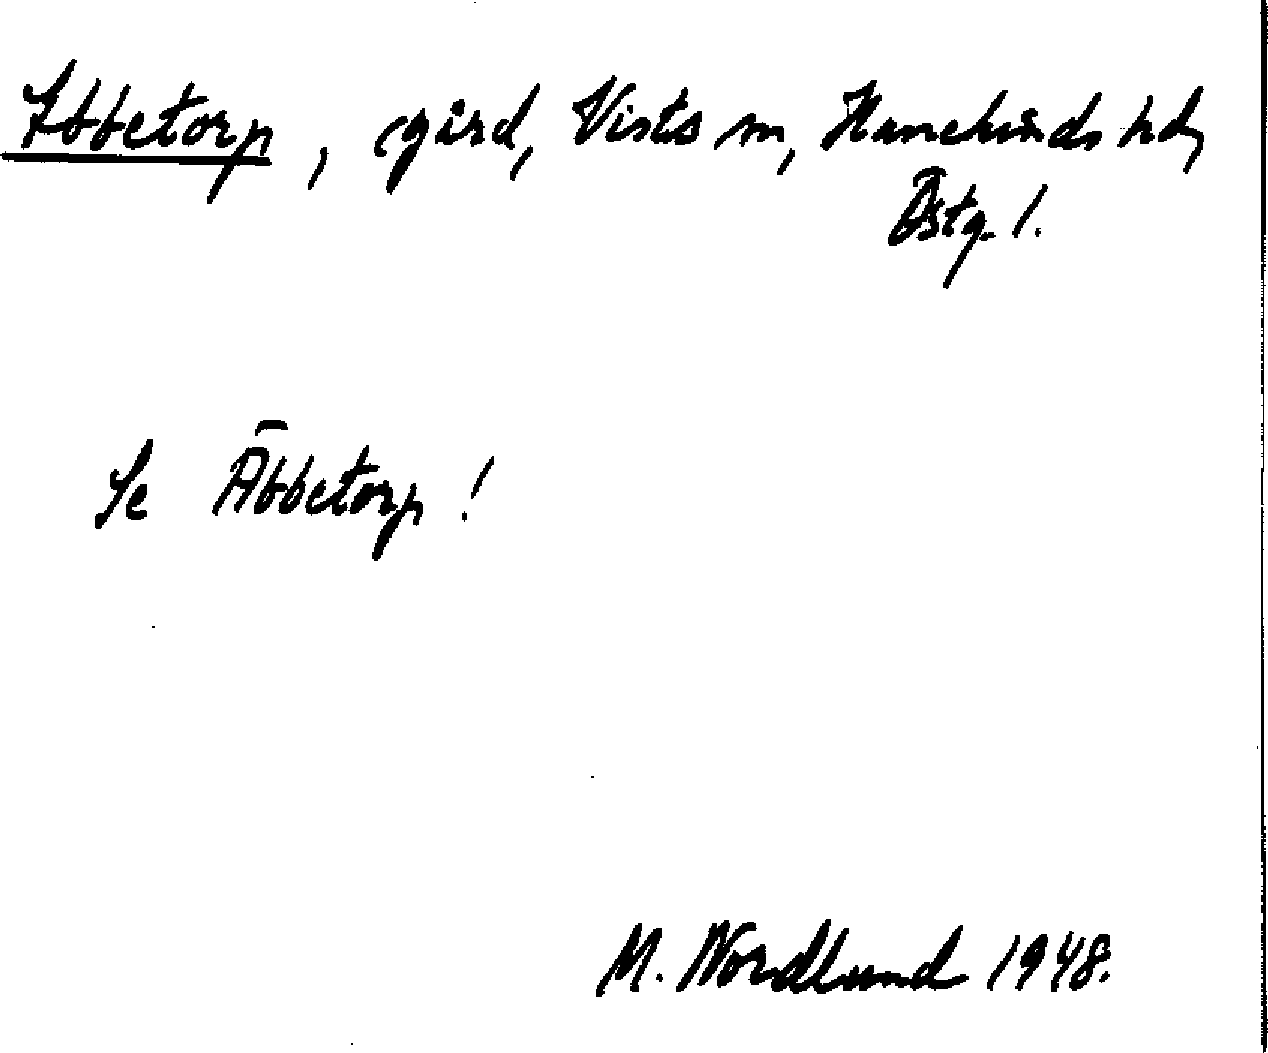 Ibbetorp, gård, Vists sn, Hanekinds hd,
Östg. l.
Se Äbbetorp!
M. Nordlund 1948.